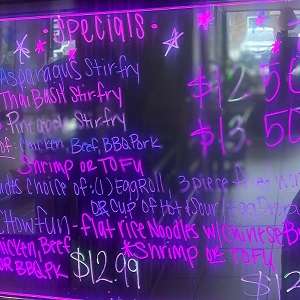 Specials
Asparagus Stirfry
Thai Basil Stirfry $12.50
Pineapple Stirfry $13.50
of: Chicken, Beef, BBQ Pork
*Shrimp or TOFU
choice of: (1) Egg Roll, 3 piece
OR CUP of Hot & Sour
Chowfun - flat rice Noodles w/ Chinese
chicken, Beef *Shrimp or TOFU
OR BBQ PK $12.99